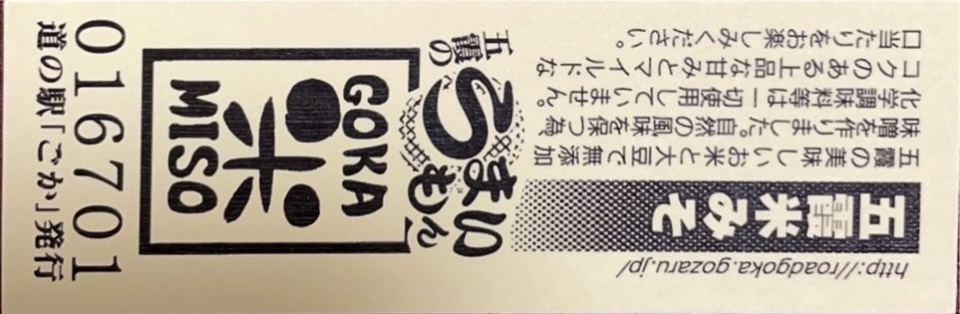 http://roadgoka.gozaru.jp/
五霞米みそ
五霞の美味しいお米と大豆で無添加
味噌を作りました。自然の風味を保つ為、
化学調味料等は一切使用していません。
コクのある上品な甘みとマイルドな
口当たりをお楽しみください。
五霞の
うまいもん
GOKA
米
MISO
016701
道の駅「ごか」発行